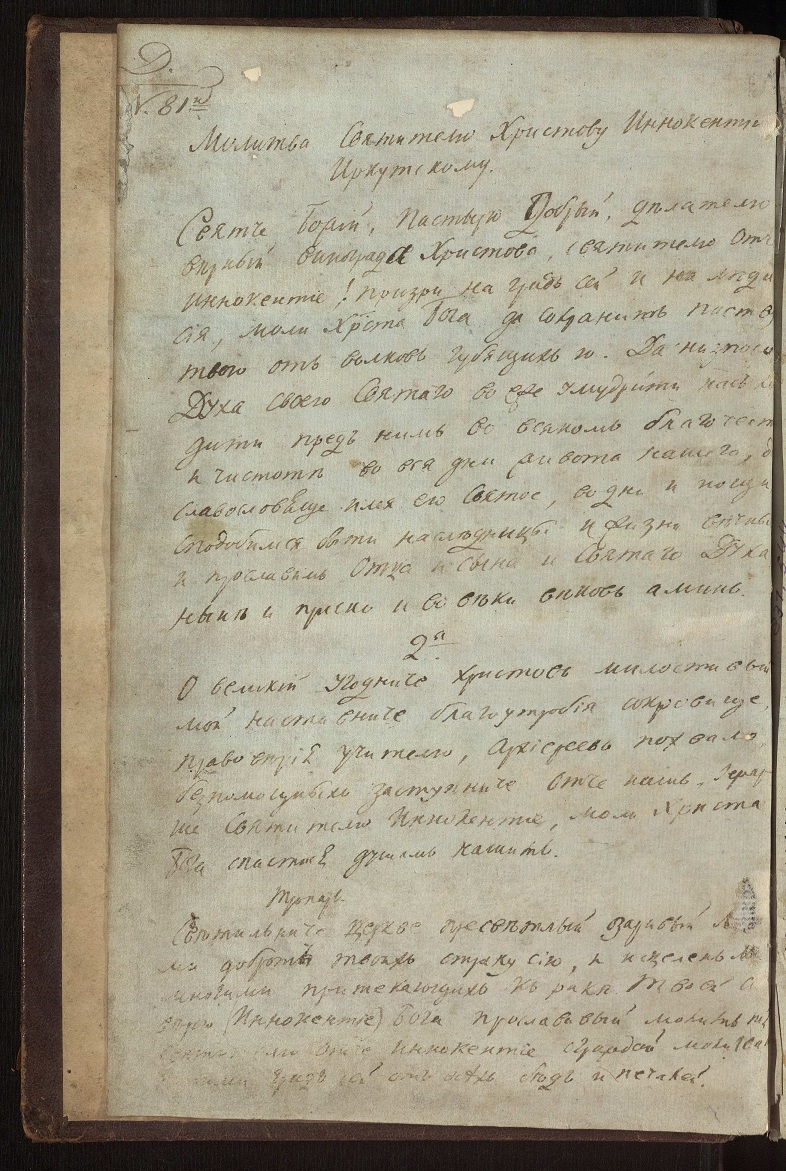 D.
N. 81й
Молитва Святителю Христову Иннокентію
Иркутскому.
Святче Божій, Пастырю Добрый, дѣлателю
вѣрный винограда Христова, святителю Отче
Иннокентіе! призри на градъ сей и на люди
сія, моли Хрїста Бога да сохранитъ паству
твою отъ волковъ губящихъ ю. Да низпослетъ
Духа своего Святаго во еже умудрити насъ
дити предъ нимъ во всякомъ благочест
и чистотѣ во вся дни живота нашего, д
славословяще имя его Святое, во дни и нощи
сподобимся быти наслѣдницы и жизни вѣчныя
и прославимъ Отца и Сына и Святаго Духа
нынѣ и присно и во вѣки вѣковъ аминь.
2я
О великій угодниче Христовъ милостивый
мой наставниче благоутробія сокровище,
православія учителю, Архіереевъ похвало,
безпомощныхъ заступниче Отче нашъ, Іерар
ше Святителю Иннокентіе, моли Христа
Бога спастися душамъ нашимъ.
Тропарь.
Свѣтильниче церкве пресвѣтлый озаривый
ми добротъ твоихъ страну сію, и исцеленьми
многими притекающихъ къ ракѣ твоей с
вѣрою (Иннокентіе) Бога прославивый молимъ тя
Святителю Отче Иннокентіе ограждай молитвами
твоими градъ сей отъ всѣхъ бѣдъ и печалей.